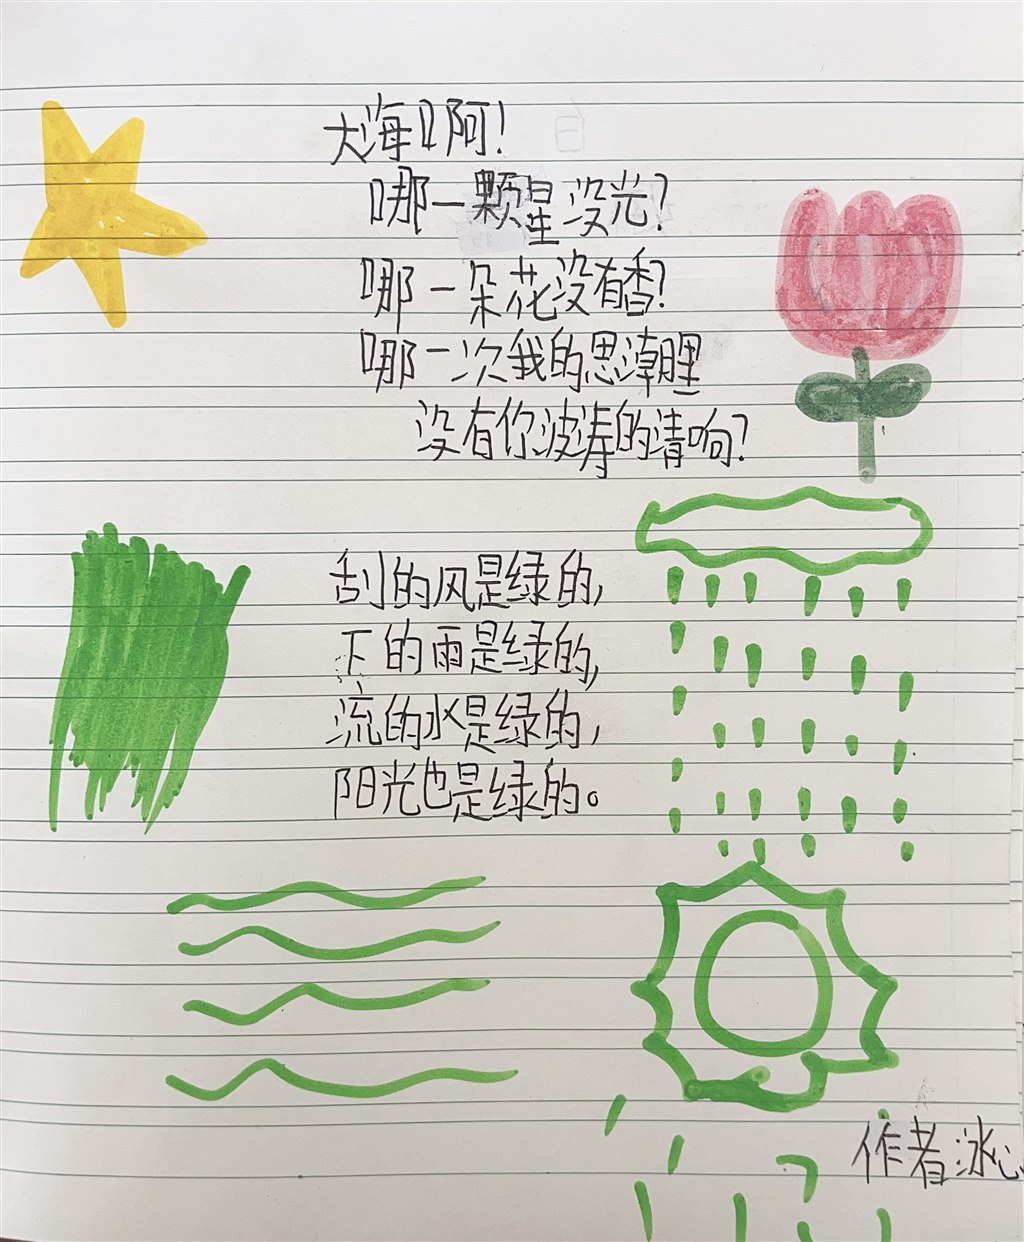 大海啊!
哪一颗星没光?
哪一朵花没有香?
哪一次我的思潮里
没有你波涛的清响?
刮的风是绿的,
下的雨是绿的,
流的水是绿的,
阳光也是绿的。
作者冰心